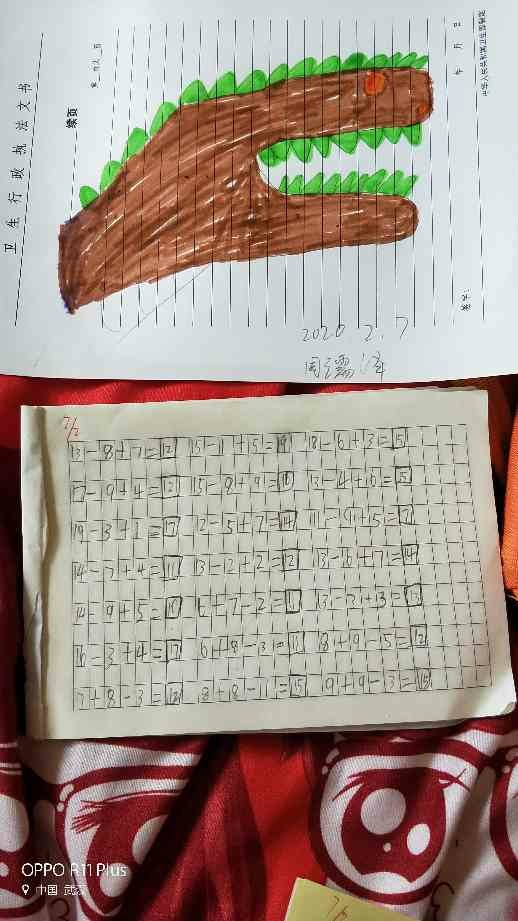 卫生行政执法文书
续页
中华人民共和国卫生部制定
年 月 日
签字:
2020 2.7
7/2
13-8+7=12 15-11+15=19 18-6+3=15
17-9+4=12 15-8+9=16 13-4+16=25
19-3+1=17 12-5+7=14
14-7+4=11 13-12+2=12
14-9+5=10 6+7-2=11
16-3+4=17 6+8-3=11 18+9-15=12
7+8-3=12 8+18-11=15 9+9-3=15
OPPO R11 Plus
中国 武汉